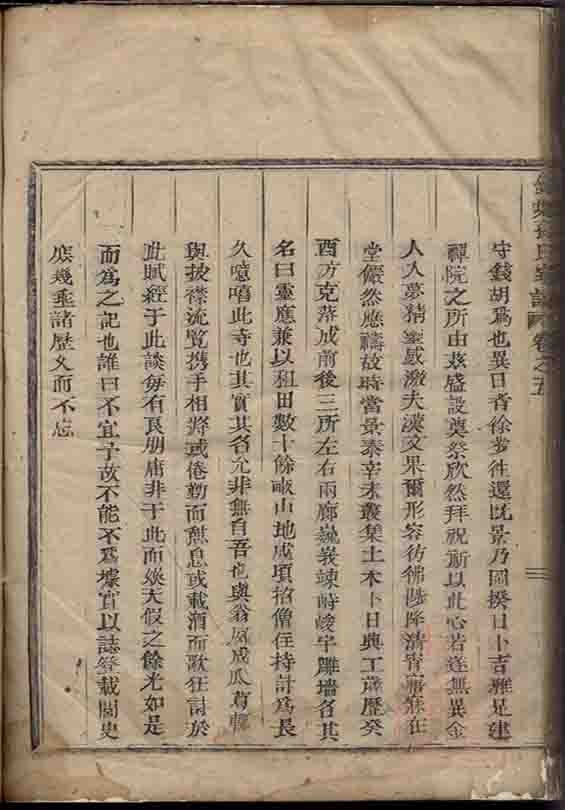 卷之五
守錢胡爲也異日者徐步往還既景乃岡揆日卜吉雅足建
禪院之所由茲盛設奠祭欣然拜祝斯以此心若遂無異金
人入夢精靈感激夫漢文果爾形容彷彿陟降清宵寤寐在
堂儼然應禱故時當景泰辛未叢集土木卜日興工歲歷癸
酉方克落成前後三所左右兩廊巍峩竦峙峻宇雕墙名其
名曰靈應兼以租田數十餘畝山地成頃招僧住持計爲長
久噫嘻此寺也其實其名允非無自吾也與翁夙成瓜葛
與披襟流覽携手相將或倦勤而憩息或載酒而歌狂討於
此賦經于此談每有良朋庸非于此而娛天假之餘光如是
而爲之記也誰曰不宜予故不能不爲據實以誌登載閫史
庶幾垂諸歷久而不忘